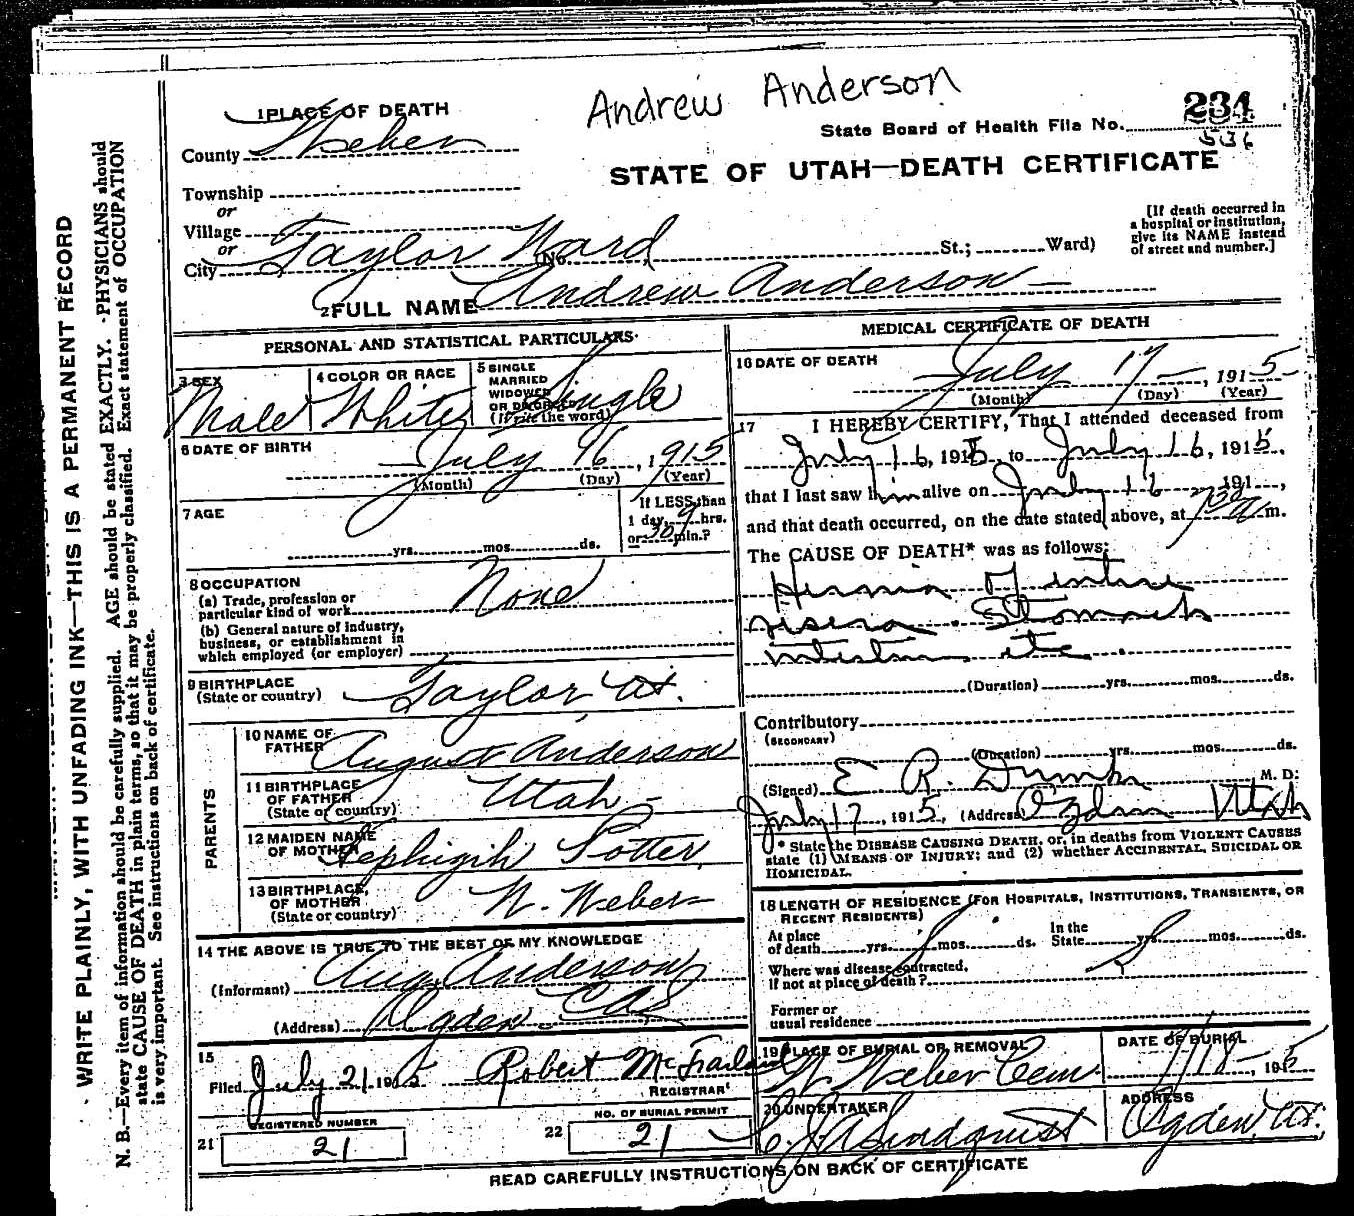 Andrew Anderson
1 PLACE OF DEATH
234
State Board of Health File No.
536
County Weber
STATE OF UTAH—DEATH CERTIFICATE
Township
or
Village
or
City Taylor Ward (No. St.; Ward)
[If death occurred in
a hospital or institution,
give its NAME instead
of street and number.]
2 FULL NAME Andrew Anderson
PERSONAL AND STATISTICAL PARTICULARS
3 SEX
Male
4 COLOR OR RACE
White
5 SINGLE
MARRIED
WIDOWED
OR DIVORCED
(Write the word)
Single
6 DATE OF BIRTH
July 16, 1915
(Month) (Day) (Year)
7 AGE
yrs. mos. ds.
If LESS than
1 day, hrs.
or 30 min.?
8 OCCUPATION
(a) Trade, profession or
particular kind of work
None
(b) General nature of industry,
business, or establishment in
which employed (or employer)
9 BIRTHPLACE
(State or country)
Taylor, Ut.
PARENTS
10 NAME OF
FATHER
August Anderson
11 BIRTHPLACE
OF FATHER
(State or country)
Utah
12 MAIDEN NAME
OF MOTHER
Potter
13 BIRTHPLACE
OF MOTHER
(State or country)
W. Weber
14 THE ABOVE IS TRUE TO THE BEST OF MY KNOWLEDGE
(Informant) Aug. Anderson
(Address) Ogden
15
Filed July 21 1915 Robert McFarland
REGISTRAR
REGISTERED NUMBER
21 21
NO. OF BURIAL PERMIT
22 21
MEDICAL CERTIFICATE OF DEATH
16 DATE OF DEATH
July 17, 1915
(Month) (Day) (Year)
17 I HEREBY CERTIFY, That I attended deceased from
July 16, 1915, to July 16, 1915,
that I last saw him alive on July 16 191 ,
and that death occurred, on the date stated above, at 730 a m.
The CAUSE OF DEATH* was as follows:
Hernia of entire
visera. Stomach
intestines etc.
(Duration) yrs. mos. ds.
Contributory
(SECONDARY)
(Duration) yrs. mos. ds.
(Signed) E R. Dumke M. D.
July 17, 1915, (Address) Ogden Utah
* State the DISEASE CAUSING DEATH, or, in deaths from VIOLENT CAUSES
state (1) MEANS OF INJURY; and (2) whether ACCIDENTAL, SUICIDAL OR
HOMICIDAL.
18 LENGTH OF RESIDENCE (FOR HOSPITALS, INSTITUTIONS, TRANSIENTS, OR
RECENT RESIDENTS)
At place
of death yrs. mos. ds.
In the
State yrs. mos. ds.
Where was disease contracted,
if not at place of death?
Former or
usual residence
19 PLACE OF BURIAL OR REMOVAL
W. Weber Cem.
DATE OF BURIAL
7/18, 1915
20 UNDERTAKER
Lindquist
ADDRESS
Ogden, Ut.
READ CAREFULLY INSTRUCTIONS ON BACK OF CERTIFICATE
WRITE PLAINLY, WITH UNFADING INK—THIS IS A PERMANENT RECORD
N. B.—Every item of information should be carefully supplied. AGE should be stated EXACTLY. PHYSICIANS should
state CAUSE OF DEATH in plain terms, so that it may be properly classified. Exact statement of OCCUPATION
is very important. See instructions on back of certificate.